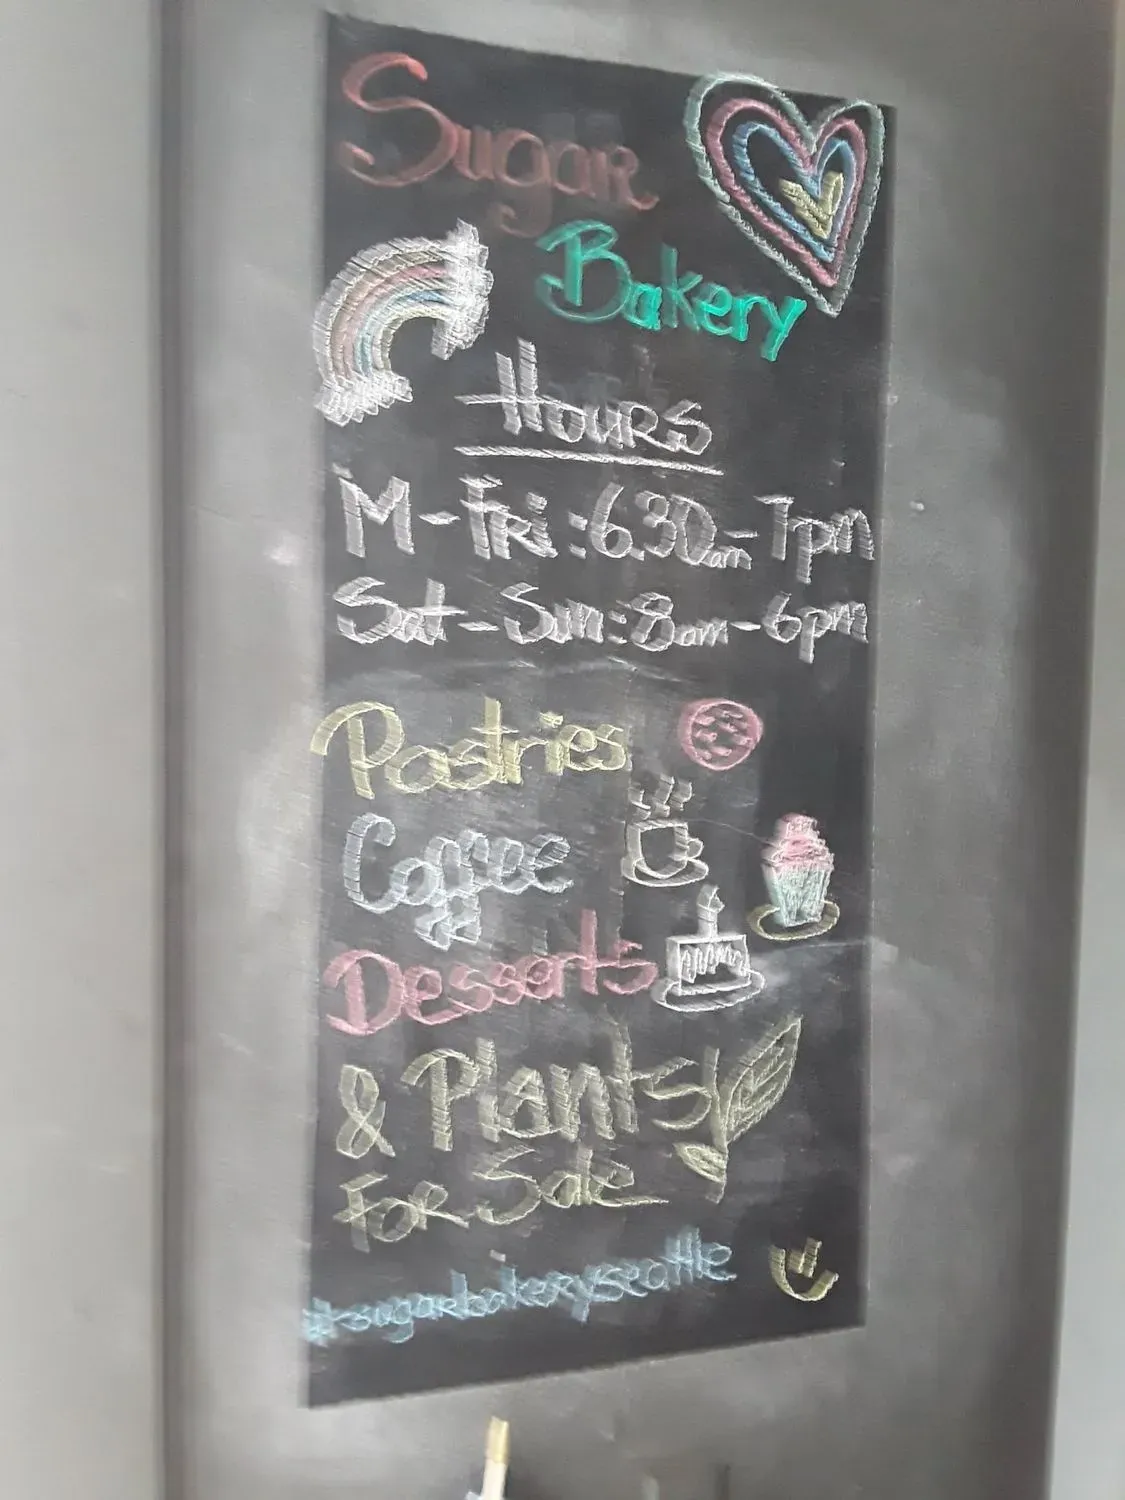 Sugar
Bakery
Hours
M-Fri: 6.30am-7pm
Sat-Sun: 8am-6pm
Pastries
Coffee
Desserts
& Plants
For Sale
#sugarbakeryseattle